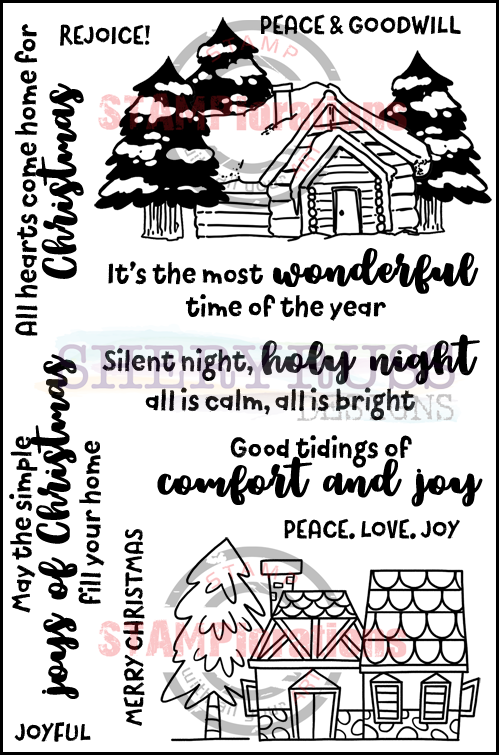 REJOICE!
PEACE & GOODWILL
All hearts come home for
Christmas
STAMP
STAMPlorations
It's the most wonderful
time of the year
SHERY RUSS
DESIGNS
Silent night, holy night
all is calm, all is bright
Good tidings of
comfort and joy
PEACE. LOVE. JOY
May the simple
joys of Christmas
fill your home
MERRY CHRISTMAS
JOYFUL
STAMP
STAMPlorations